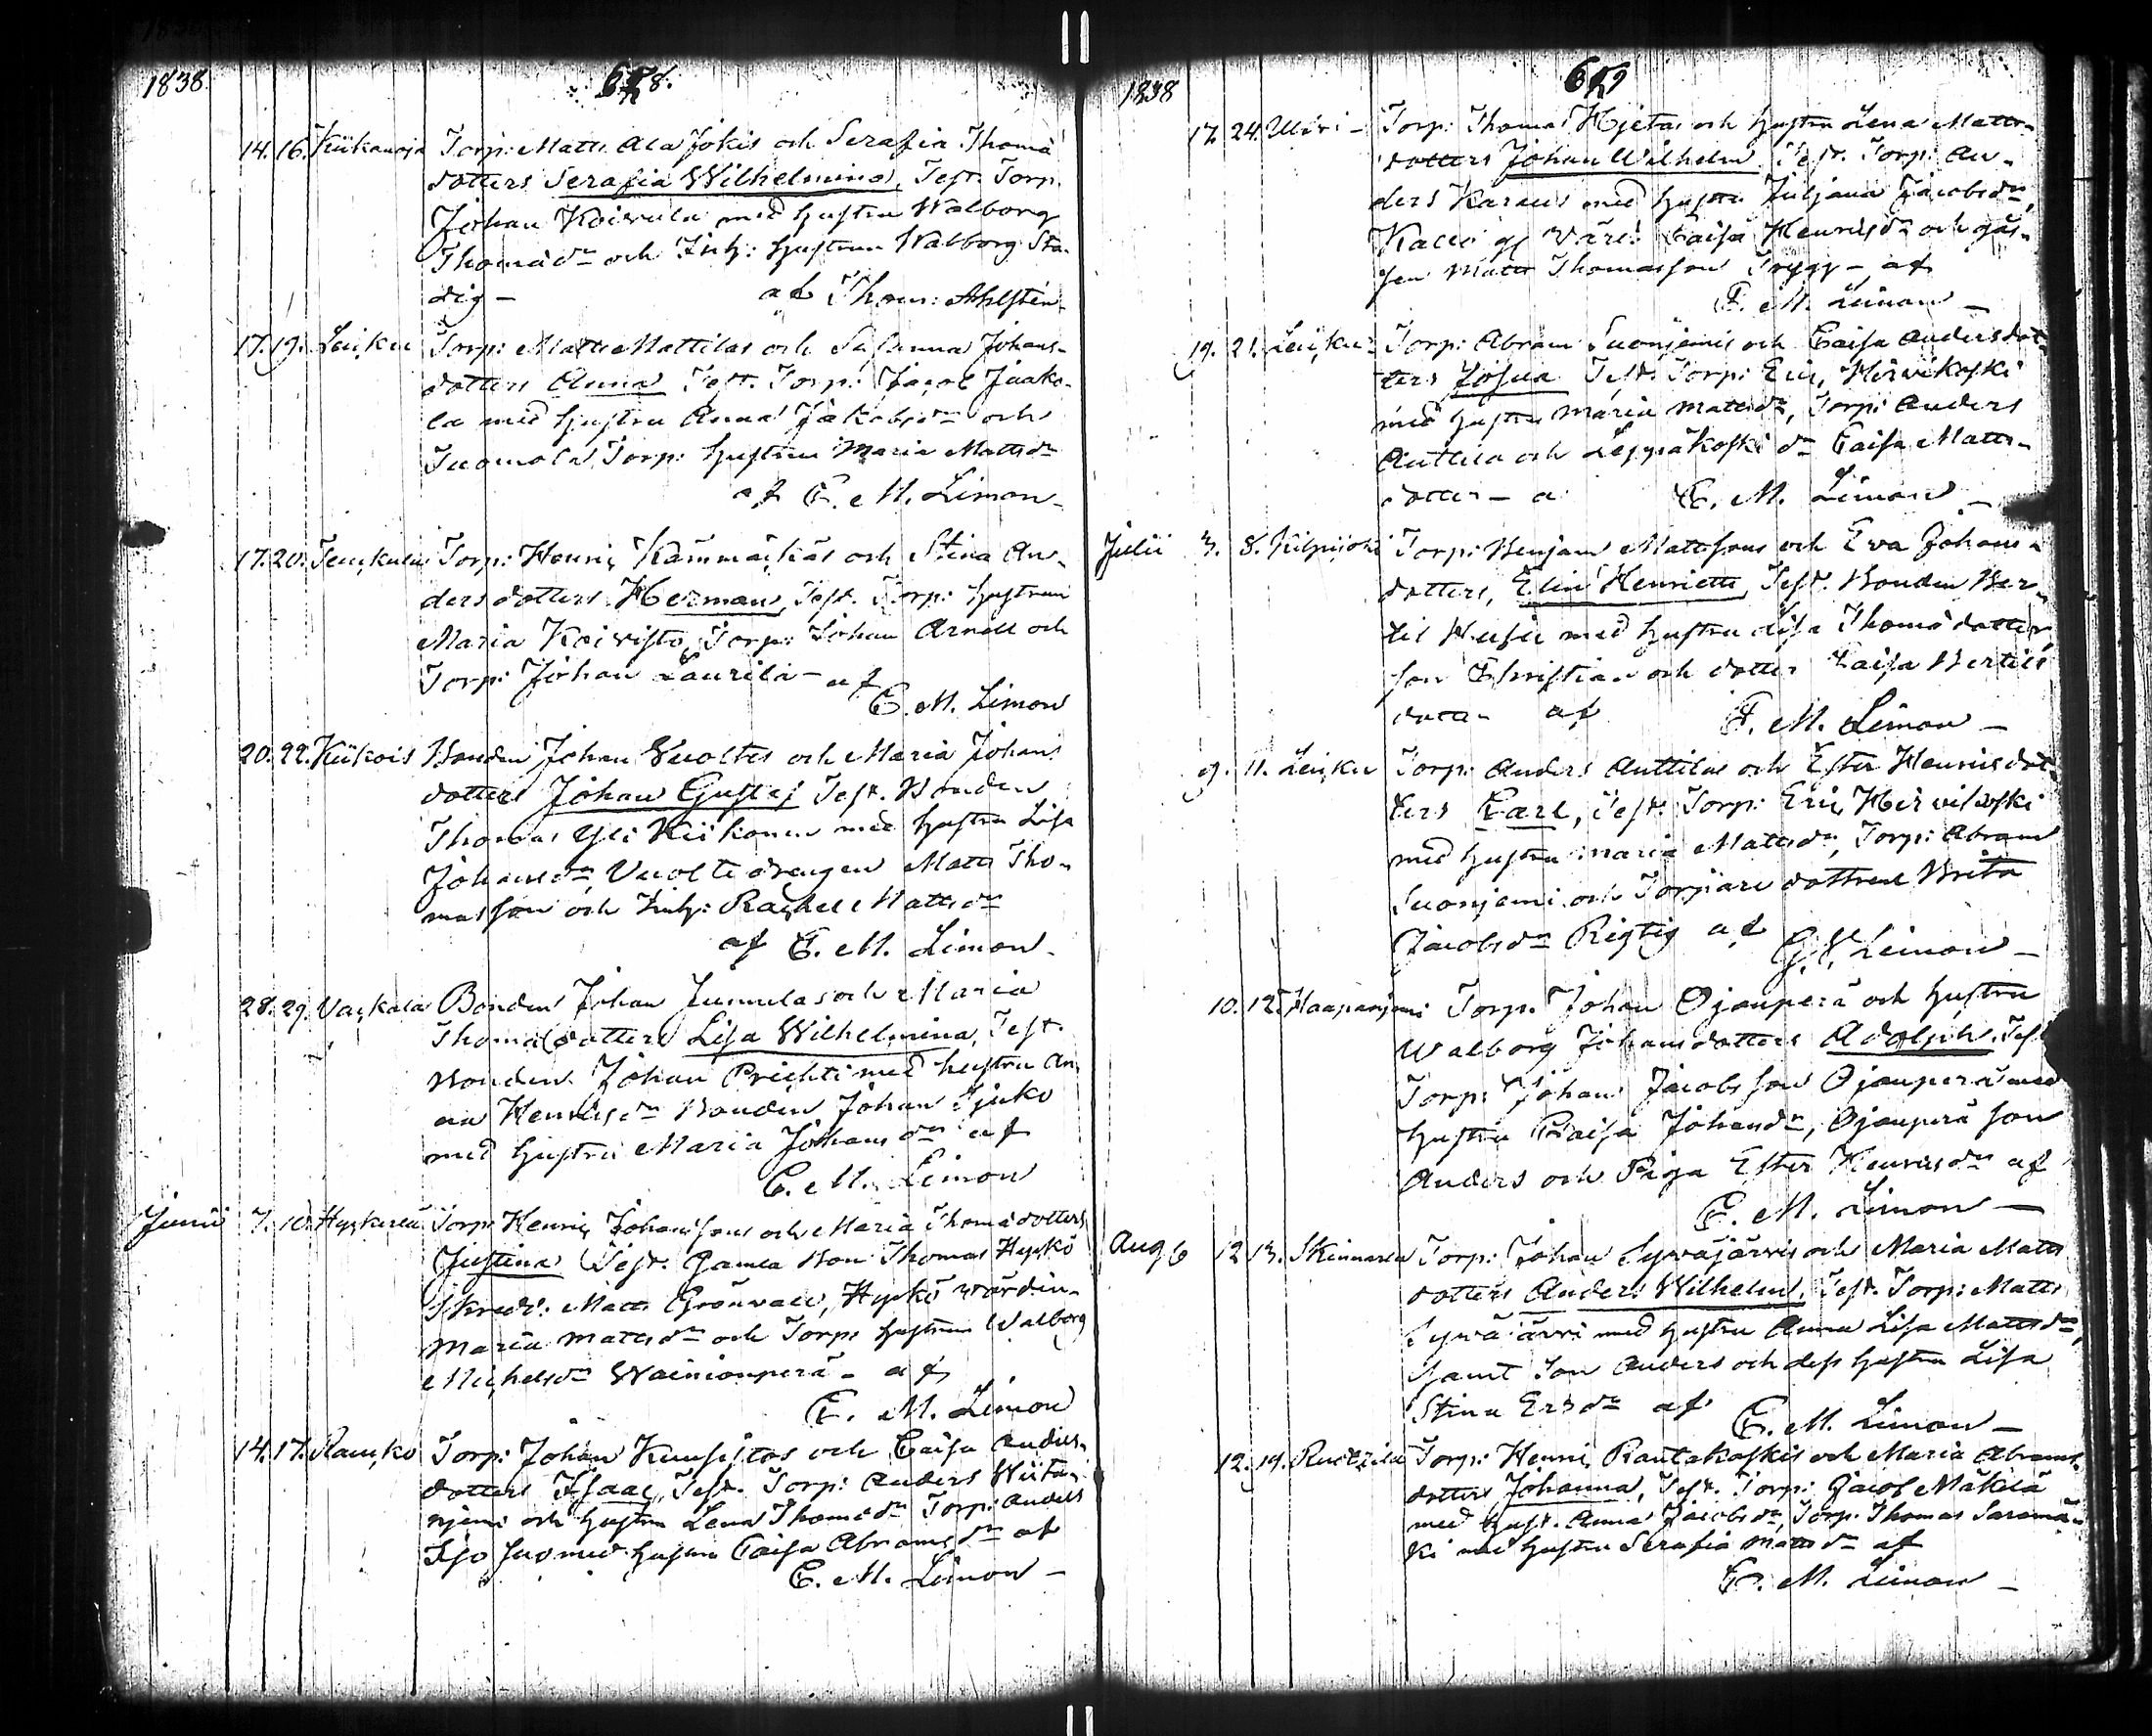 1838
658.
14. 16. Kiikanoja Torp: Matts Ala Jokis och Serafia Thomä
dotters Serafia Wilhelmina, Test. Torp.
Johan Koivula med hustru Walborg
Thomä dr och Inh: hustrun Walborg Sta-
dig — af Thom: Ahlsten.
17. 19. Leuku Torp: Matts Mattilas och Susanna Johans-
dotters Anna Test. Torp: Jacob Jaako-
la med hustru Anna Jakobs dr och
Tuomola Torp: hustrun Maria Matts dr
af E. M. Limon
17. 20. Torp: Henric och Stina An-
ders dotters Herman, Test. Torp: hustrun
Maria Koivisto, Torp: Johan Arnell och
Torp: Johan Laurila — af
E. M. Limon
20. 22. Kiikois Bonden Johan Vuoltes och Maria Johans
dotters Johan Gustaf Test. Bonden
Thomas Yli Kiikonen med hustru Lisa
Johans dr, Vuolte drengen Matts Tho-
masson och Inh: Rachel Matts dr
af E. M. Limon.
28. 29. Bonden Johan Junnilas och Maria
Thomä dotters Lisa Wilhelmina, Test.
Bonden Johan Prihti med hustru An
na Henrics dr Bonden Johan Sjuko
med hustru Maria Johans dr af
E. M. Limon
Junii 7. 10. Torp: Henric Johanssons och Maria Thomä dotters
Justina Test. Gamla Bon Thomas Hyrkö
Skredd: Matts Grönvall, Hyrkö värdin-
Maria Matts dr och Torp: hustrun Walborg
Michels dr Wainionperä — af
E. M. Limon
14. 17. Rauko Torp: Johan Kuusistos och Caisa Anders-
dotters Isaac, Test. Torp: Anders Wiita-
njemi och hustru Lena Thomä dr Torp: Anders
Iso Suo med hustru Caisa Abrams dr af
E. M. Limon —
1838
659
17. 24. Torp: Thomas Hjetas och hustru Lena Matts-
dotters Johan Wilhelm Test. Torp: An-
ders Karaus med hustru Juljana Jacobs dr,
Caisa Henrics dr och
Matts Thomasson Trygg — af
E. M. Limon —
19. 21. Leuku Torp: Abram Suonjemis och Caisa Andersdot-
ters Josua Test. Torp: Eric Hirvikoski
med hustru Maria Matts dr, Torp: Anders
Anttila och Leppäkoski dr Caisa Matts-
dotter — a E. M. Limon —
Julii 3. 8. Kilpijoki Torp: Benjam Mattssons och Eva Johans-
dotters, Elin Henriette, Test. Bonden Ber-
til med hustru Lisa Thomä dotter
son Christian och dotter Caisa Bertils
dotter af E. M. Limon —
9. 11. Leuku Torp: Anders Anttilas och Ester Henricsdot-
ters Carl, Test. Torp: Eric Hirvikoski
med hustru Maria Matts dr, Torp: Abram
Suonjemi och Torpare dottren Brita
Jacobs dr Rigtig af E. M. Limon —
10. 12. Haapanjemi Torp. Johan Ojanperä och hustru
Walborg Johans dotters Adolph. Test
Torp: Johan Jacobsson Ojanperä med
hustru Caisa Johans dr, Ojanperä son
Anders och Piga Ester Henrics dr af
E. M. Limon —
Aug 6 12 13. Skinnarla Torp: Johan Syväjärvis och Maria Matts
dotters Anders Wilhelm, Test. Torp: Matts
Syväjärvi med hustru Anna Lisa Matts dr,
samt son Anders och dess hustru Lisa
Stina Ers dr af E. M. Limon —
12. 14. Torp: Henric Rautakoskis och Maria Abrams
dotters Johanna, Test. Torp: Jacob Mäkilä
med hust. Anna Jacobs dr, Torp. Thomas Saramä-
ki med hustru Serafia Matts dr af
E. M. Limon —